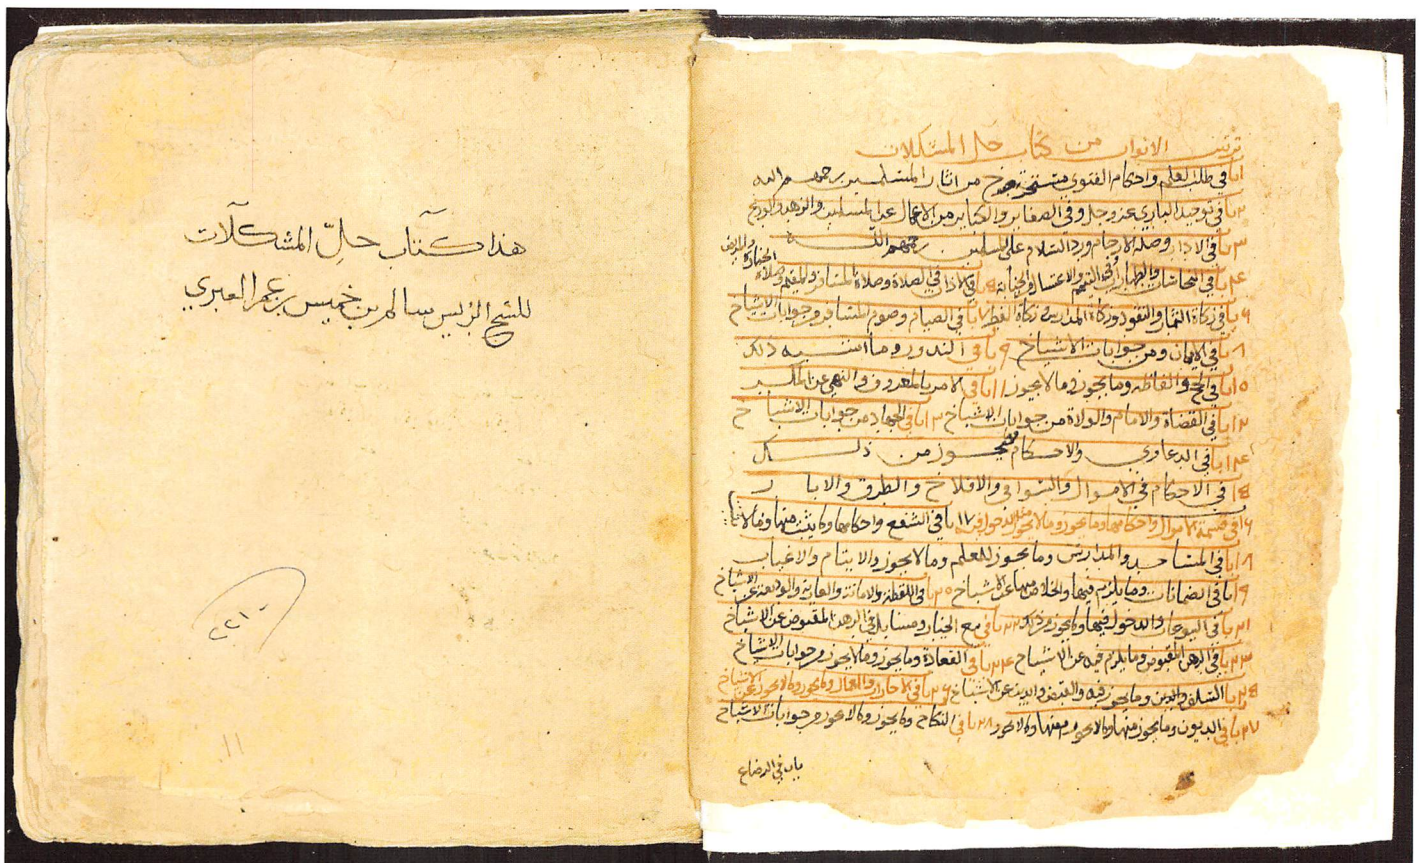 ترتيب الابواب من كتاب حل المشكلات
١ باب في طلب العلم واحكام الفتوى مستخرج من اثار المسلمين رحمهم الله
٢ باب في توحيد الباري عز وجل وفي الصغاير والكباير من الاعمال عن المسلمين والزهد والورع
٣ باب في الاداب وصلة الارحام ورد السلام على المسلمين رحمهم الله
٤ باب في النجاسات والطهارات وفي التيمم والاغتسال من الجنابة ٥ باب في الاذان وفي الصلاة وصلاة المسافر والمقيم وصلاة الجنازة والمريض
٦ باب في زكاة الثمار والنقود وزكاة المدارس وزكاة الفطر ٧ باب في الصيام وصوم المسافر وجوابات الاشياخ
٨ باب في الايمان ومن جوابات الاشياخ ٩ باب في النذور وما اشبه ذلك
١٠ باب في الحج والفاظه وما يجوز وما لا يجوز ١١ باب في الامر بالمعروف والنهي عن المنكر
١٢ باب في القضاة والامام والولاة من جوابات الاشياخ ١٣ باب في الجهاد من جوابات الاشياخ
١٤ باب في الدعاوي والاحكام فيجوز من ذلك
١٥ في الاحكام في الاموال والسواقي والافلاج والطرق والابار
١٦ في قسمة الاموال واحكامها وما يجوز وما لا يجوز ١٧ باب في الشفع واحكامها وما يثبت منها وما لا يثبت
١٨ باب في المساجد والمدارس وما يجوز للمعلم وما لا يجوز والايتام والاغياب
١٩ باب في الضمانات وما يلزم فيها والخلاص منها عن الاشياخ ٢٠ باب في اللقطة والامانة والعارية والوديعة عن الاشياخ
٢١ باب في البيوعات والدخول فيها وما يجوز من ذلك ٢٢ باب في بيع الخيار ومسايل في الرهن المقبوض عن الاشياخ
٢٣ باب في الرهن المقبوض وما يلزم فيه عن الاشياخ ٢٤ باب في القعادة وما يجوز وما لا يجوز من جوابات الاشياخ
٢٥ باب السلف والدين وما يجوز فيه والقبض والدين عن الاشياخ ٢٦ باب في الاجارات والعمال وما يجوز وما لا يجوز عن الاشياخ
٢٧ باب في الديون وما يجوز منها وما لا يجوز ٢٨ باب في النكاح وما يجوز وما لا يجوز من جوابات الاشياخ
باب في الرضاع
هذا كتاب حل المشكلات
للشيخ الرئيس سالم بن خميس بن عمر العبري
٢٢١٠
١١